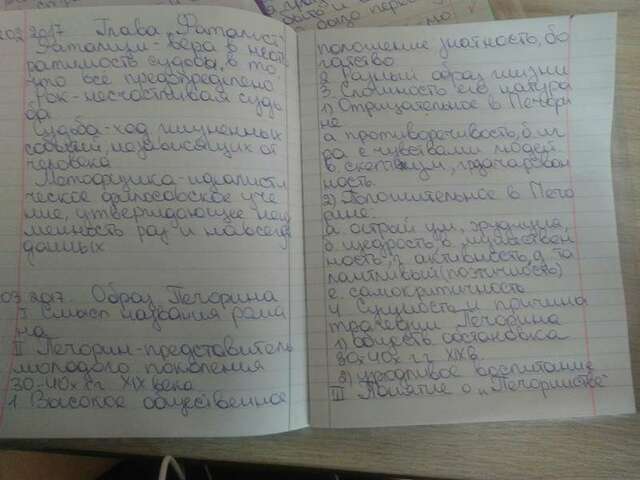 02.2017 Глава „Фаталист"
Фатализм-вера в неот
вратимость судьбы, в то
что все предопределено
Рок-несчастливая судь
ба
Судьба-ход жизненных
событий, независящих от
человека
Метафизика-идеалисти
ческое философское уче
ние, утверждающее
менность раз и навсегда
данных
03.2017. Образ Печорина
I Смысл названия рома
на
II Печорин-представитель
молодого поколения
30-40х гг XIX века
1. Высокое общественное
положение знатность, бо
гатство
2. Разный образ жизни
3. Сложность его натура
1) Отрицательное в Печори
не
а. противоречивость, б. иг
ра с чувствами людей
в. скептицизм,
ность
2) Положительное в Печо
рине:
а. острый ум, эрудиция,
б. щедрость в. мужествен
ность, г. активность, д. та
лантливый (поэтичность)
е. самокритичность
4. Сущность и причина
трагедии Печорина
1) обществ. обстановка
30-40х гг XIX в.
2) уродливое воспитание
III Понятие о „Печоринстве"